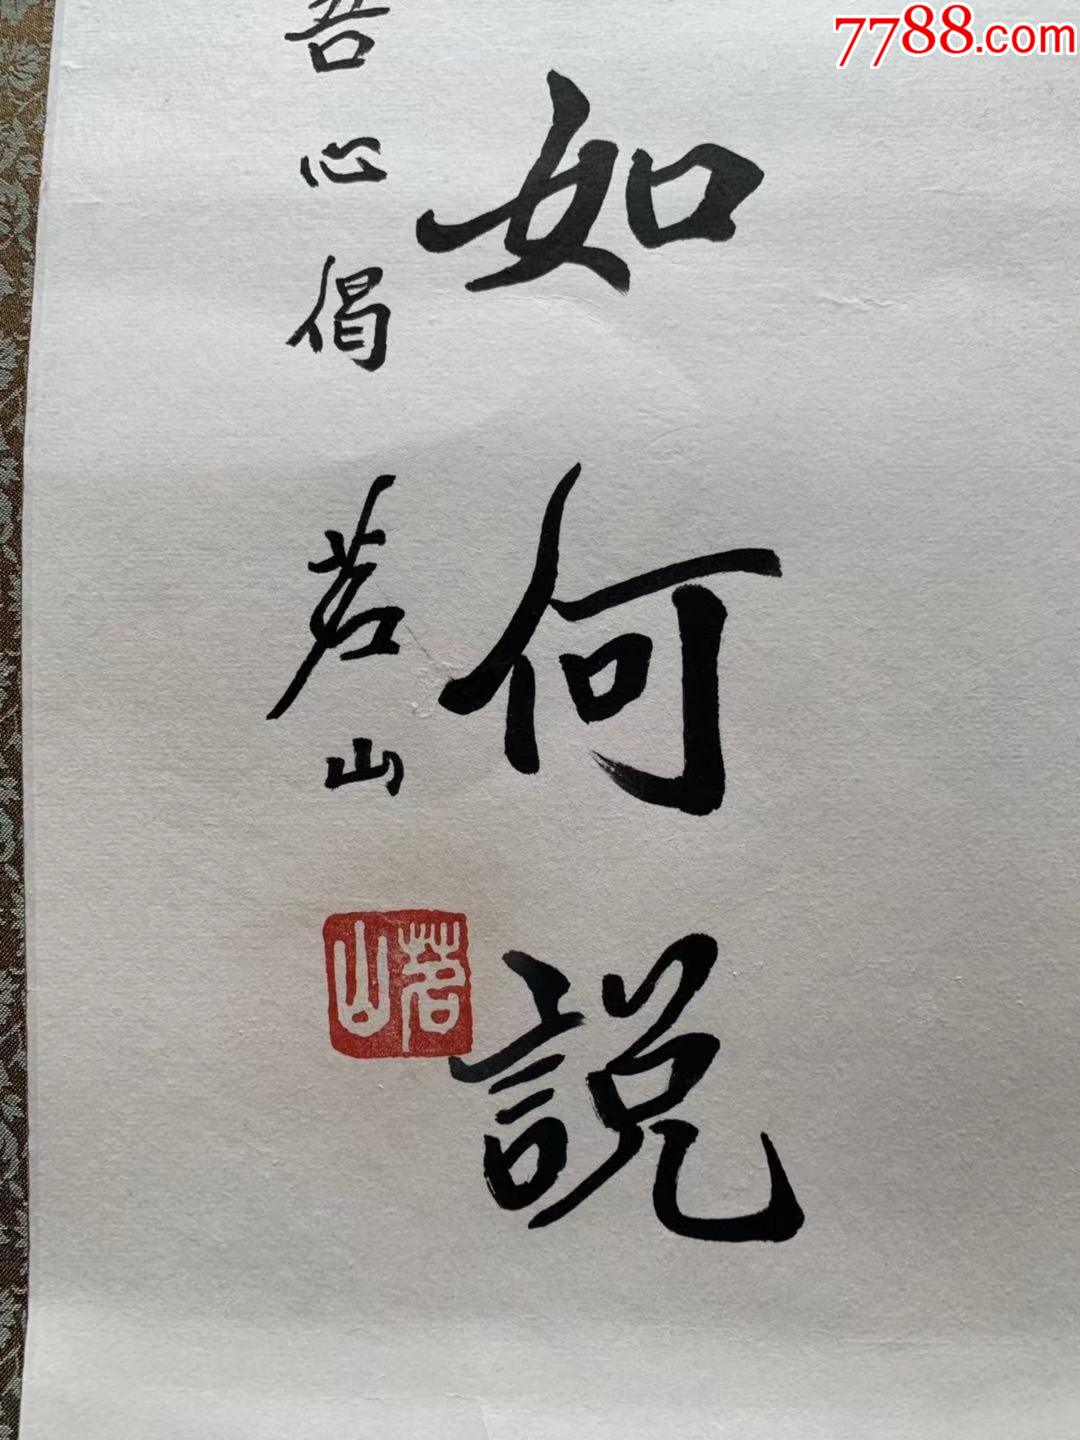 7788.com
如何說
吾心偈
茗山
茗山